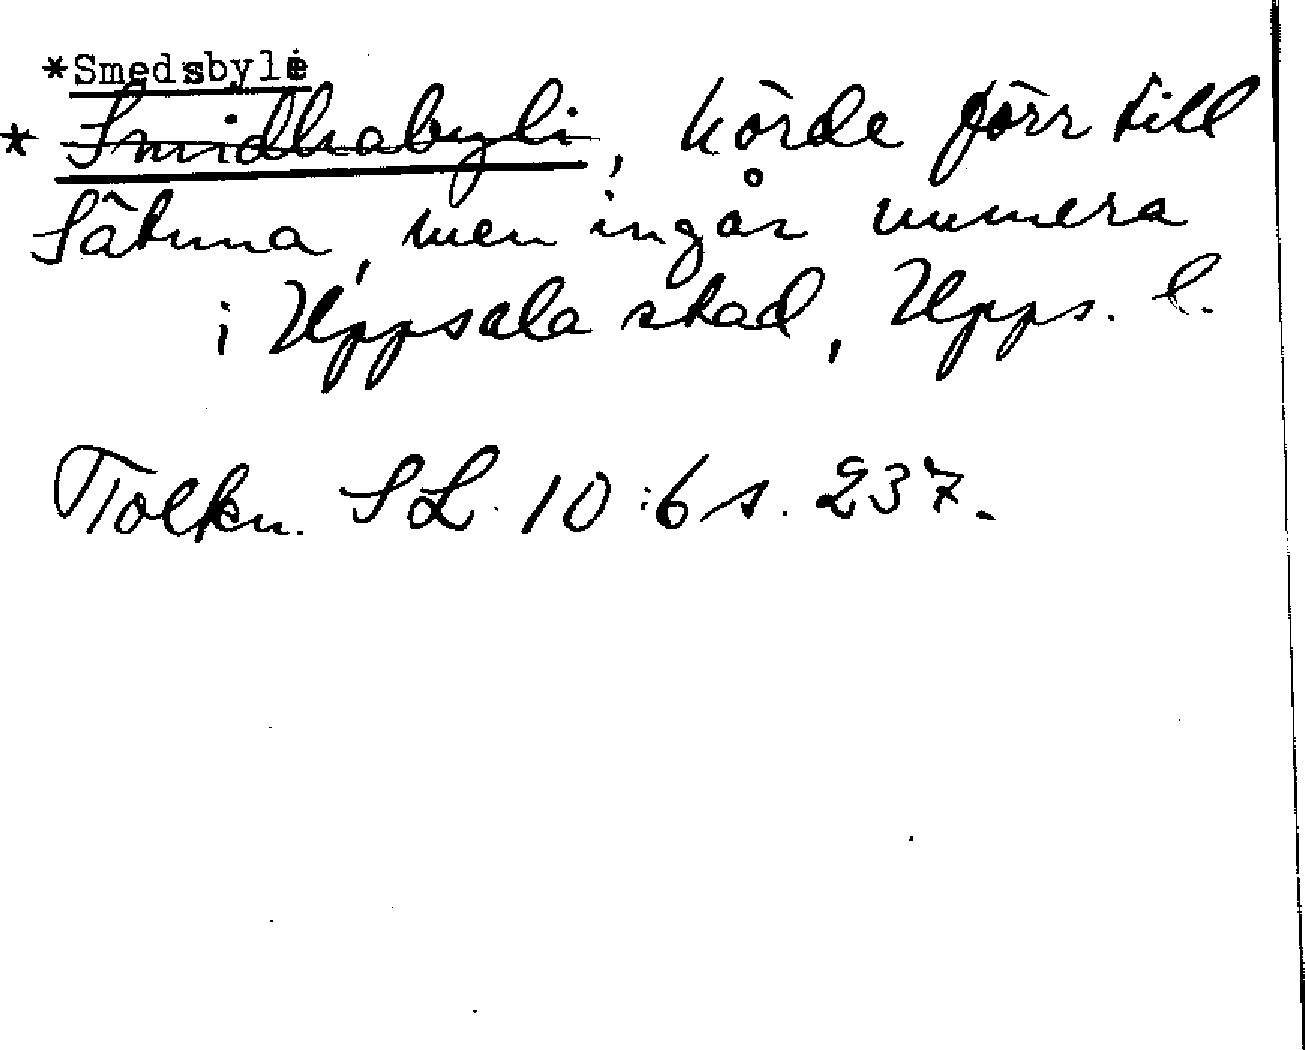 *Smedsbyle
* Smidhabyli, hörde förr till
Sätuna, men ingår numera
i Uppsala stad, Upps. l.
Tolkn. SL. 10:6 s. 237.